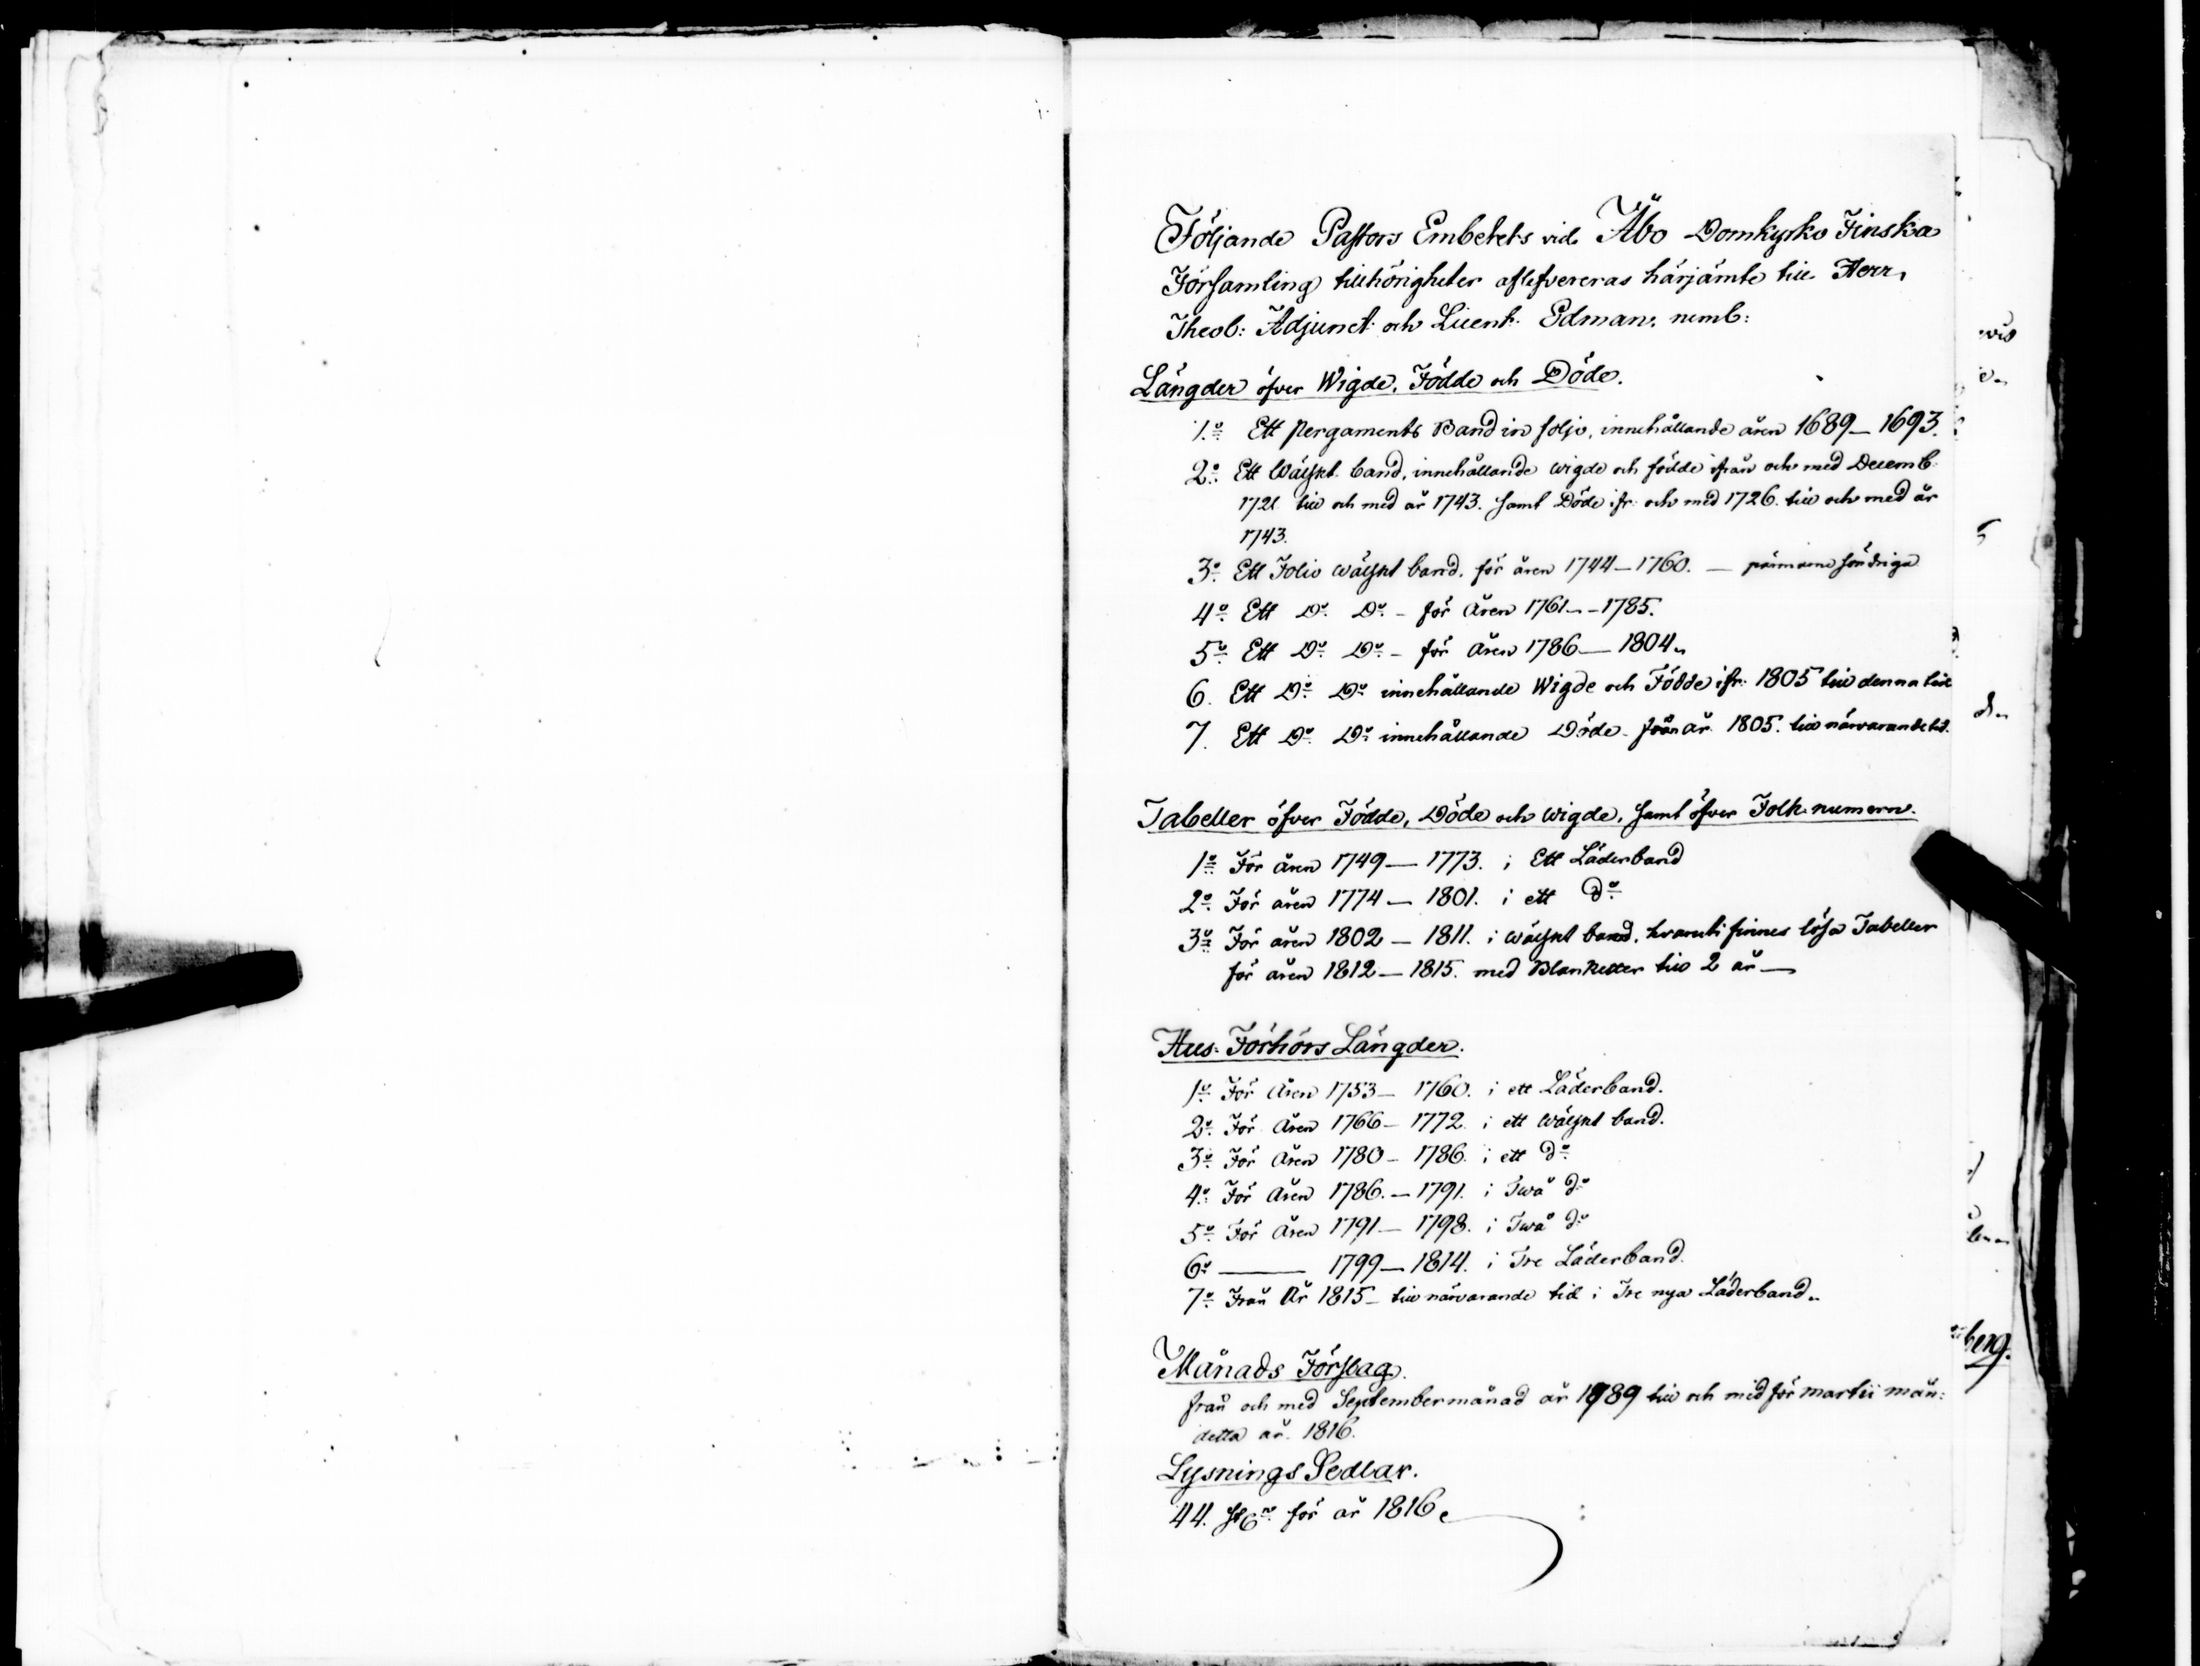 Följande Pastors Embetets vid Åbo Domkyrko Finska
Församling tillhörigheter aflefvereras härjämte till Herr
Theol: Adjunct och Licent. Edman. neml:
Längder öfver Wigde, Födde och Döde.
1.o Ett Pergaments Band in foljo, innehållande åren 1689 — 1693.
2.o Ett Wälskt band, innehållande wigde och födde ifrån och med Decemb:
1721 till och med år 1743. samt Döde ifr: och med 1726. till och med år
1743.
3.o Ett Folio wälskt band, för åren 1744 — 1760. — pärmarne söndriga
4.o Ett Do. Do. — för Åren 1761 — 1785.
5.o Ett Do. Do. — för Åren 1786 — 1804.
6. Ett Do. Do. innehållande Wigde och Födde ifr: 1805 till denna tid
7. Ett Do. Do. innehållande Döde från år 1805. till närvarande tid.
Tabeller öfver Födde, Döde och wigde, samt öfver Folk numern.
1o För åren 1749 — 1773. i Ett Läderband
2o. För åren 1774 — 1801. i ett do
3o För åren 1802 — 1811. i wälskt band, hvaruti finnes lösa Tabeller
för åren 1812 — 1815. med Blanketter till 2 år —
Hus-Förhörs Längder.
1o. För Åren 1753 — 1760. i ett Läderband.
2o. För Åren 1766 — 1772. i ett wälskt band.
3o. För Åren 1780 — 1786. i ett do
4o. För Åren 1786. — 1791. i Twå do
5o. För Åren 1791 — 1798. i Twå do
6o. — 1799 — 1814. i Tre Läderband.
7o. Från År 1815 — till närvarande tid i Tre nya Läderband.
Månads Förslag.
från och med September månad år 1789 till och med för martii mån:
detta år 1816.
Lysnings Sedlar.
44. för år 1816.
berg.